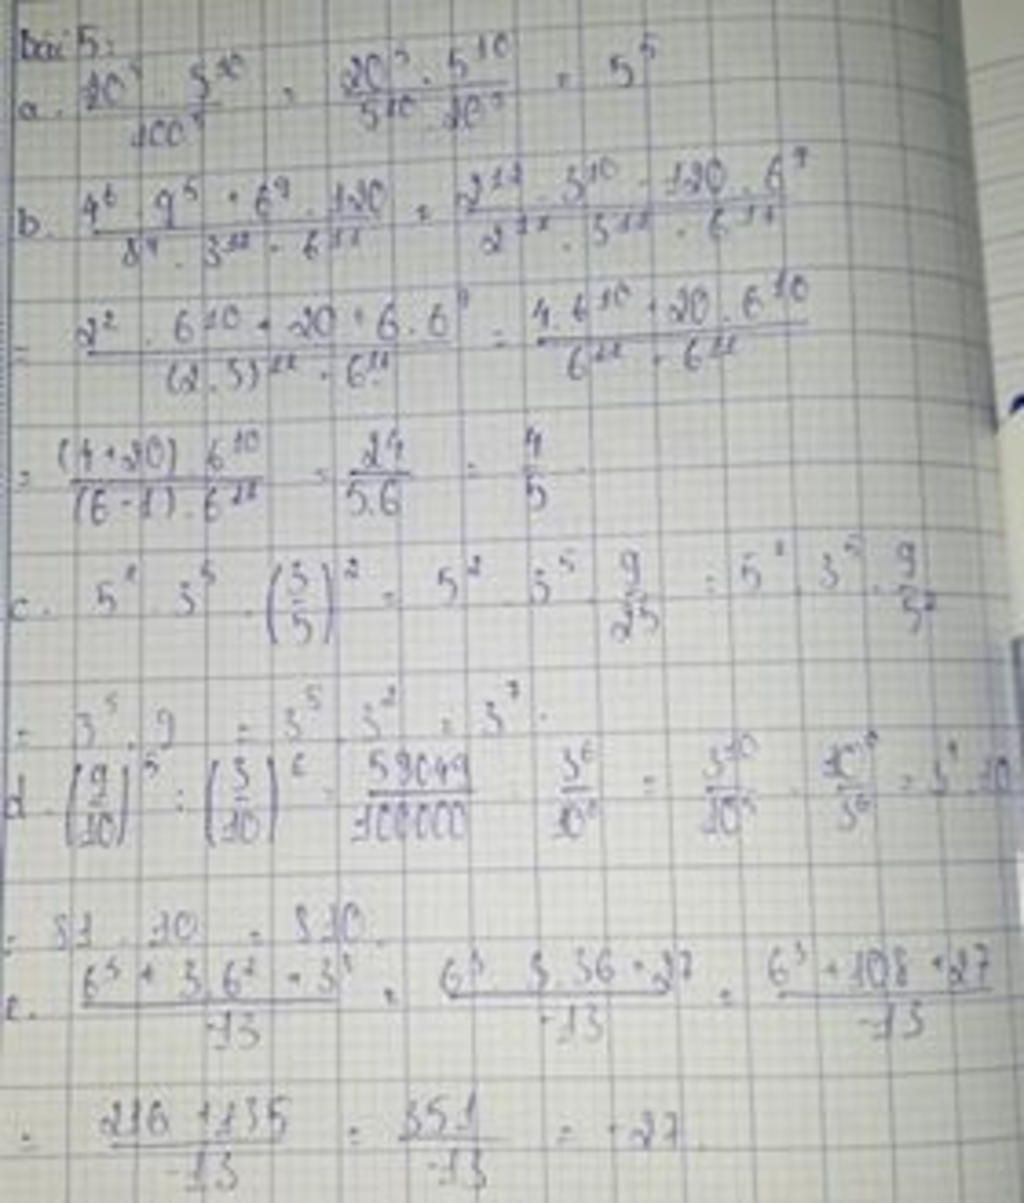 Bài 5:
a. 20⁵ . 5¹⁰ / 100⁵ = 20⁵ . 5¹⁰ / 5¹⁰ . 20⁵ = 5⁵
b. 4⁶ . 9⁵ + 6⁹ . 120 / 8⁴ . 3¹² - 6¹¹ = 2¹² . 3¹⁰ + 120 . 6⁹ / 2¹² . 3¹² - 6¹¹
= 2² . 6¹⁰ + 20 . 6 . 6⁹ / (2.3)¹² - 6¹¹ = 4 . 6¹⁰ + 20 . 6¹⁰ / 6¹² - 6¹¹
= (4+20) . 6¹⁰ / (6-1) . 6¹¹ = 24 / 5.6 = 4 / 5
c. 5² . 3⁵ . (3/5)² = 5² . 3⁵ . 9/25 = 5² . 3⁵ . 9/5²
= 3⁵ . 9 = 3⁵ . 3² = 3⁷.
d. (9/10)⁵ : (3/10)⁶ = 59049/100000 : 3⁶/10⁶ = 3¹⁰/10⁵ . 10⁶/3⁶ = 3⁴ . 10
= 81 . 10 = 810.
e. 6³ + 3.6² + 3³ / -13 = 6³ + 3.36 + 27 / -13 = 6³ + 108 + 27 / -13
= 216 + 135 / -13 = 351 / -13 = -27.